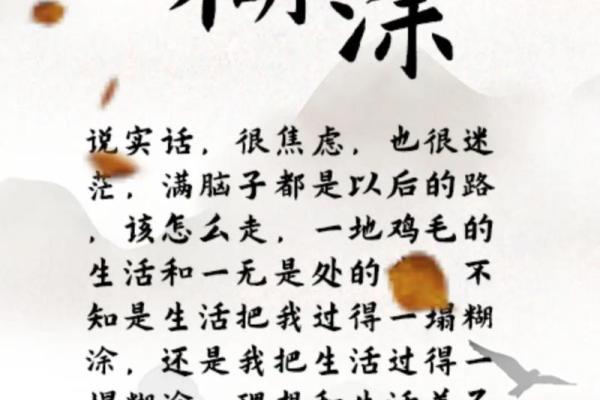 糊涂
说实话，很焦虑，也很迷
茫，满脑子都是以后的路
，该怎么走，一地鸡毛的
生活和一无是处的 不
知是生活把我过得一塌糊
涂，还是我把生活过得一
塌糊涂，理想和生活